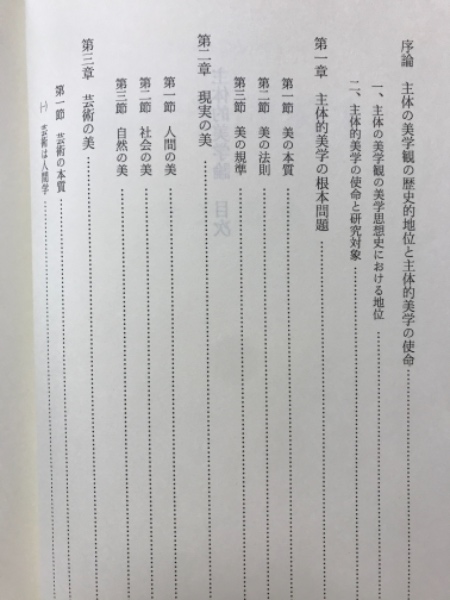 序論 主体の美学観の歴史的地位と主体的美学の使命
一、主体の美学観の美学思想史における地位
二、主体的美学の使命と研究対象
第一章 主体的美学の根本問題
第一節 美の本質
第二節 美の法則
第三節 美の規準
第二章 現実の美
第一節 人間の美
第二節 社会の美
第三節 自然の美
第三章 芸術の美
第一節 芸術の本質
㈠ 芸術は人間学
主体的美学論 目次